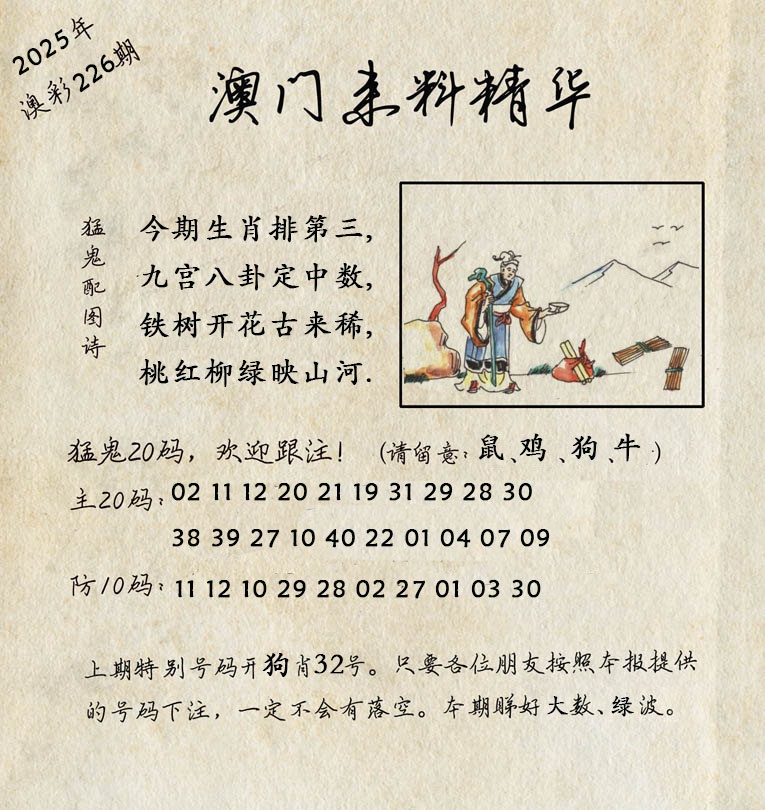 2025年
澳彩226期
澳门来料精华
猛鬼配图诗
今期生肖排第三,
九宫八卦定中数,
铁树开花古来稀,
桃红柳绿映山河.
猛鬼20码，欢迎跟注！（请留意：鼠、鸡、狗、牛）
主20码：02 11 12 20 21 19 31 29 28 30
38 39 27 10 40 22 01 04 07 09
防10码：11 12 10 29 28 02 27 01 03 30
上期特别号码开狗肖32号。只要各位朋友按照本报提供
的号码下注，一定不会有落空。本期睇好大数、绿波。